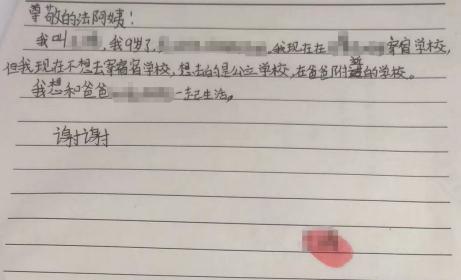 尊敬的法阿姨!
我叫，我9岁了，。我现在在寄宿学校,
但我现在不想去寄宿宿学校，想去的是公立学校，在爸爸附近的学校。
我想和爸爸一起生活。
谢谢